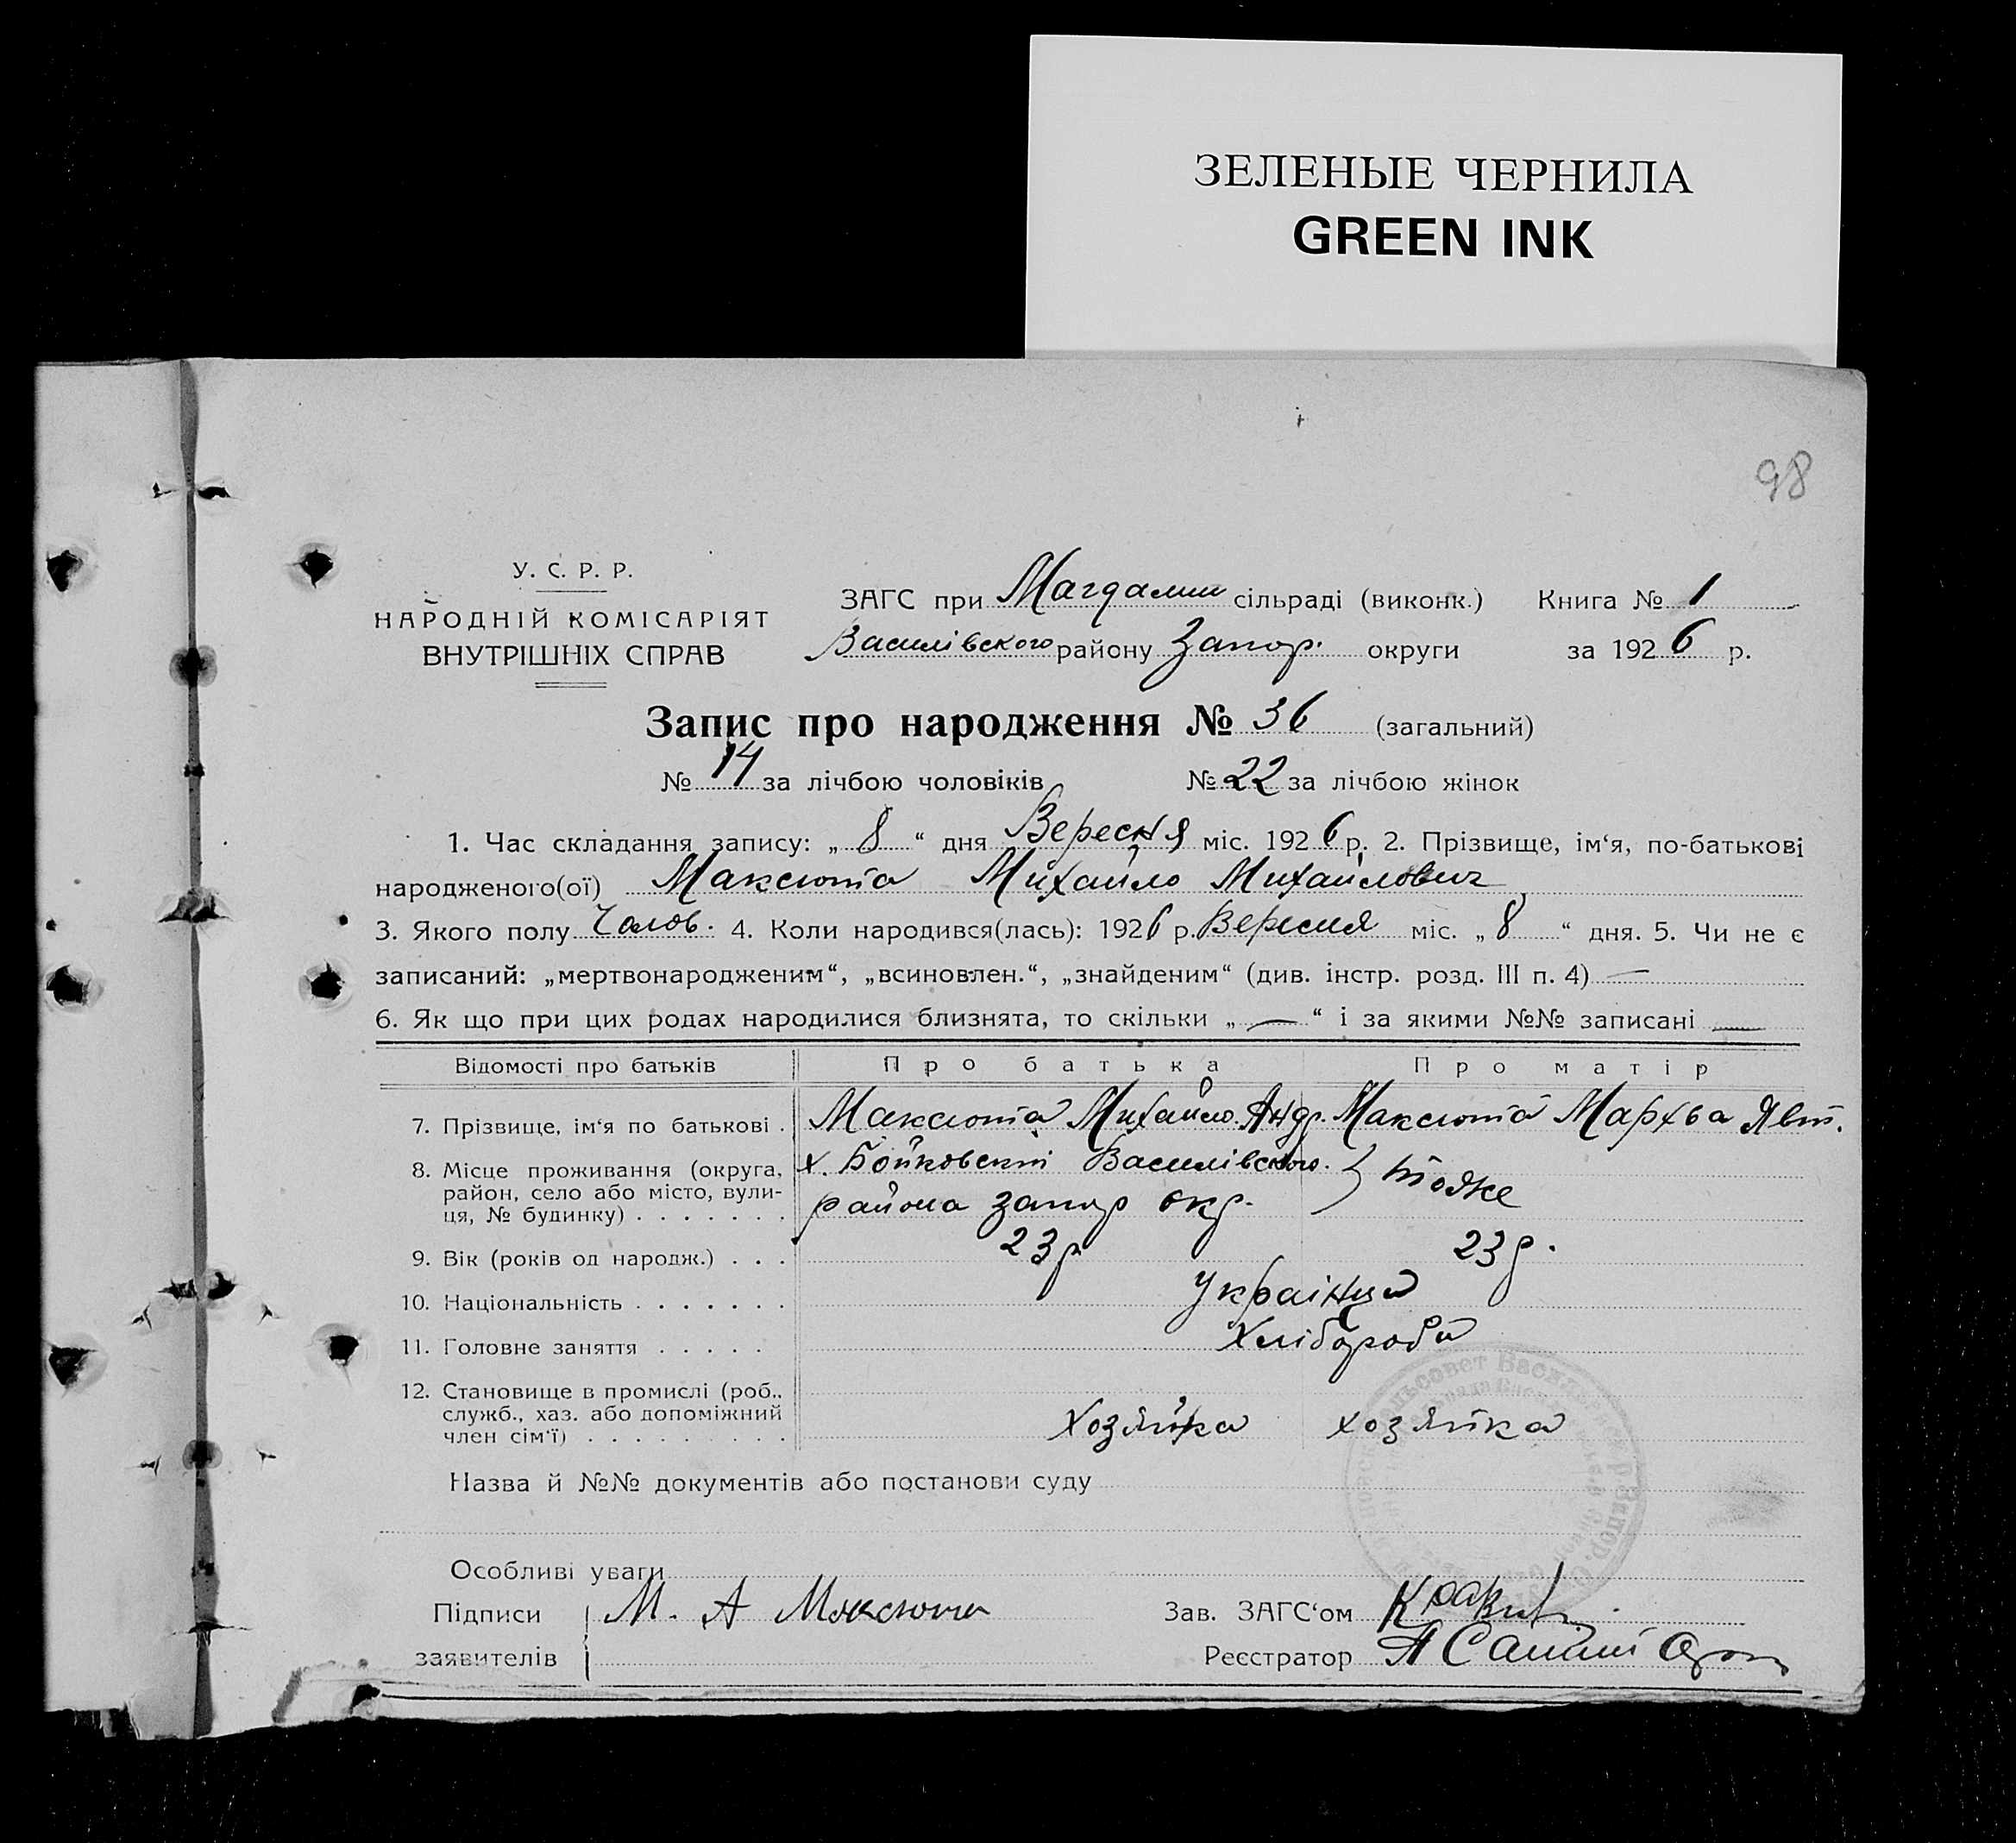 ЗЕЛЕНЫЕ ЧЕРНИЛА
GREEN INK
98
У. С. Р. Р.
НАРОДНІЙ КОМІСАРІЯТ
ВНУТРІШНІХ СПРАВ
ЗАГС при Магдалин сільраді (виконк.) Книга № 1
Василівского району Запор. округи за 1926 р.
Запис про народження № 36 (загальний)
№ 14 за лічбою чоловіків № 22 за лічбою жінок
1. Час складання запису: „ 8 “ дня Вересня міс. 1926 р. 2. Прізвище, ім‘я, по-батькові
народженого(ої) Максюта Михайло Михайлович
3. Якого полу Чолов. 4. Коли народився(лась): 1926 р. Вересня міс. „ 8 “ дня. 5. Чи не є
записаний: „мертвонародженим“, „всиновлен.“, „знайденим“ (див. інстр. розд. III п. 4) —
6. Як що при цих родах народилися близнята, то скільки „ — “ і за якими №№ записані —
Відомості про батьків Про батька Про матір
7. Прізвище, ім‘я по батькові . Максюта Михайло Андр. Максюта Мархва Явт.
8. Місце проживання (округа, х. Бойковский Василівского. тоже
район, село або місто, вули- района запор окр.
ця, № будинку) . . . . . . .
9. Вік (років од народж.) . . . 23 р. 23 р.
10. Національність . . . . . . . Українци
11. Головне заняття . . . . . Хлібороби
12. Становище в промислі (роб.,
служб., хаз. або допоміжний
член сім‘ї) . . . . . . . . Хозяйка хозяйка
Назва й №№ документів або постанови суду
Особливі уваги
Підписи М. А Максюта Зав. ЗАГС‘ом
заявителів Реєстратор